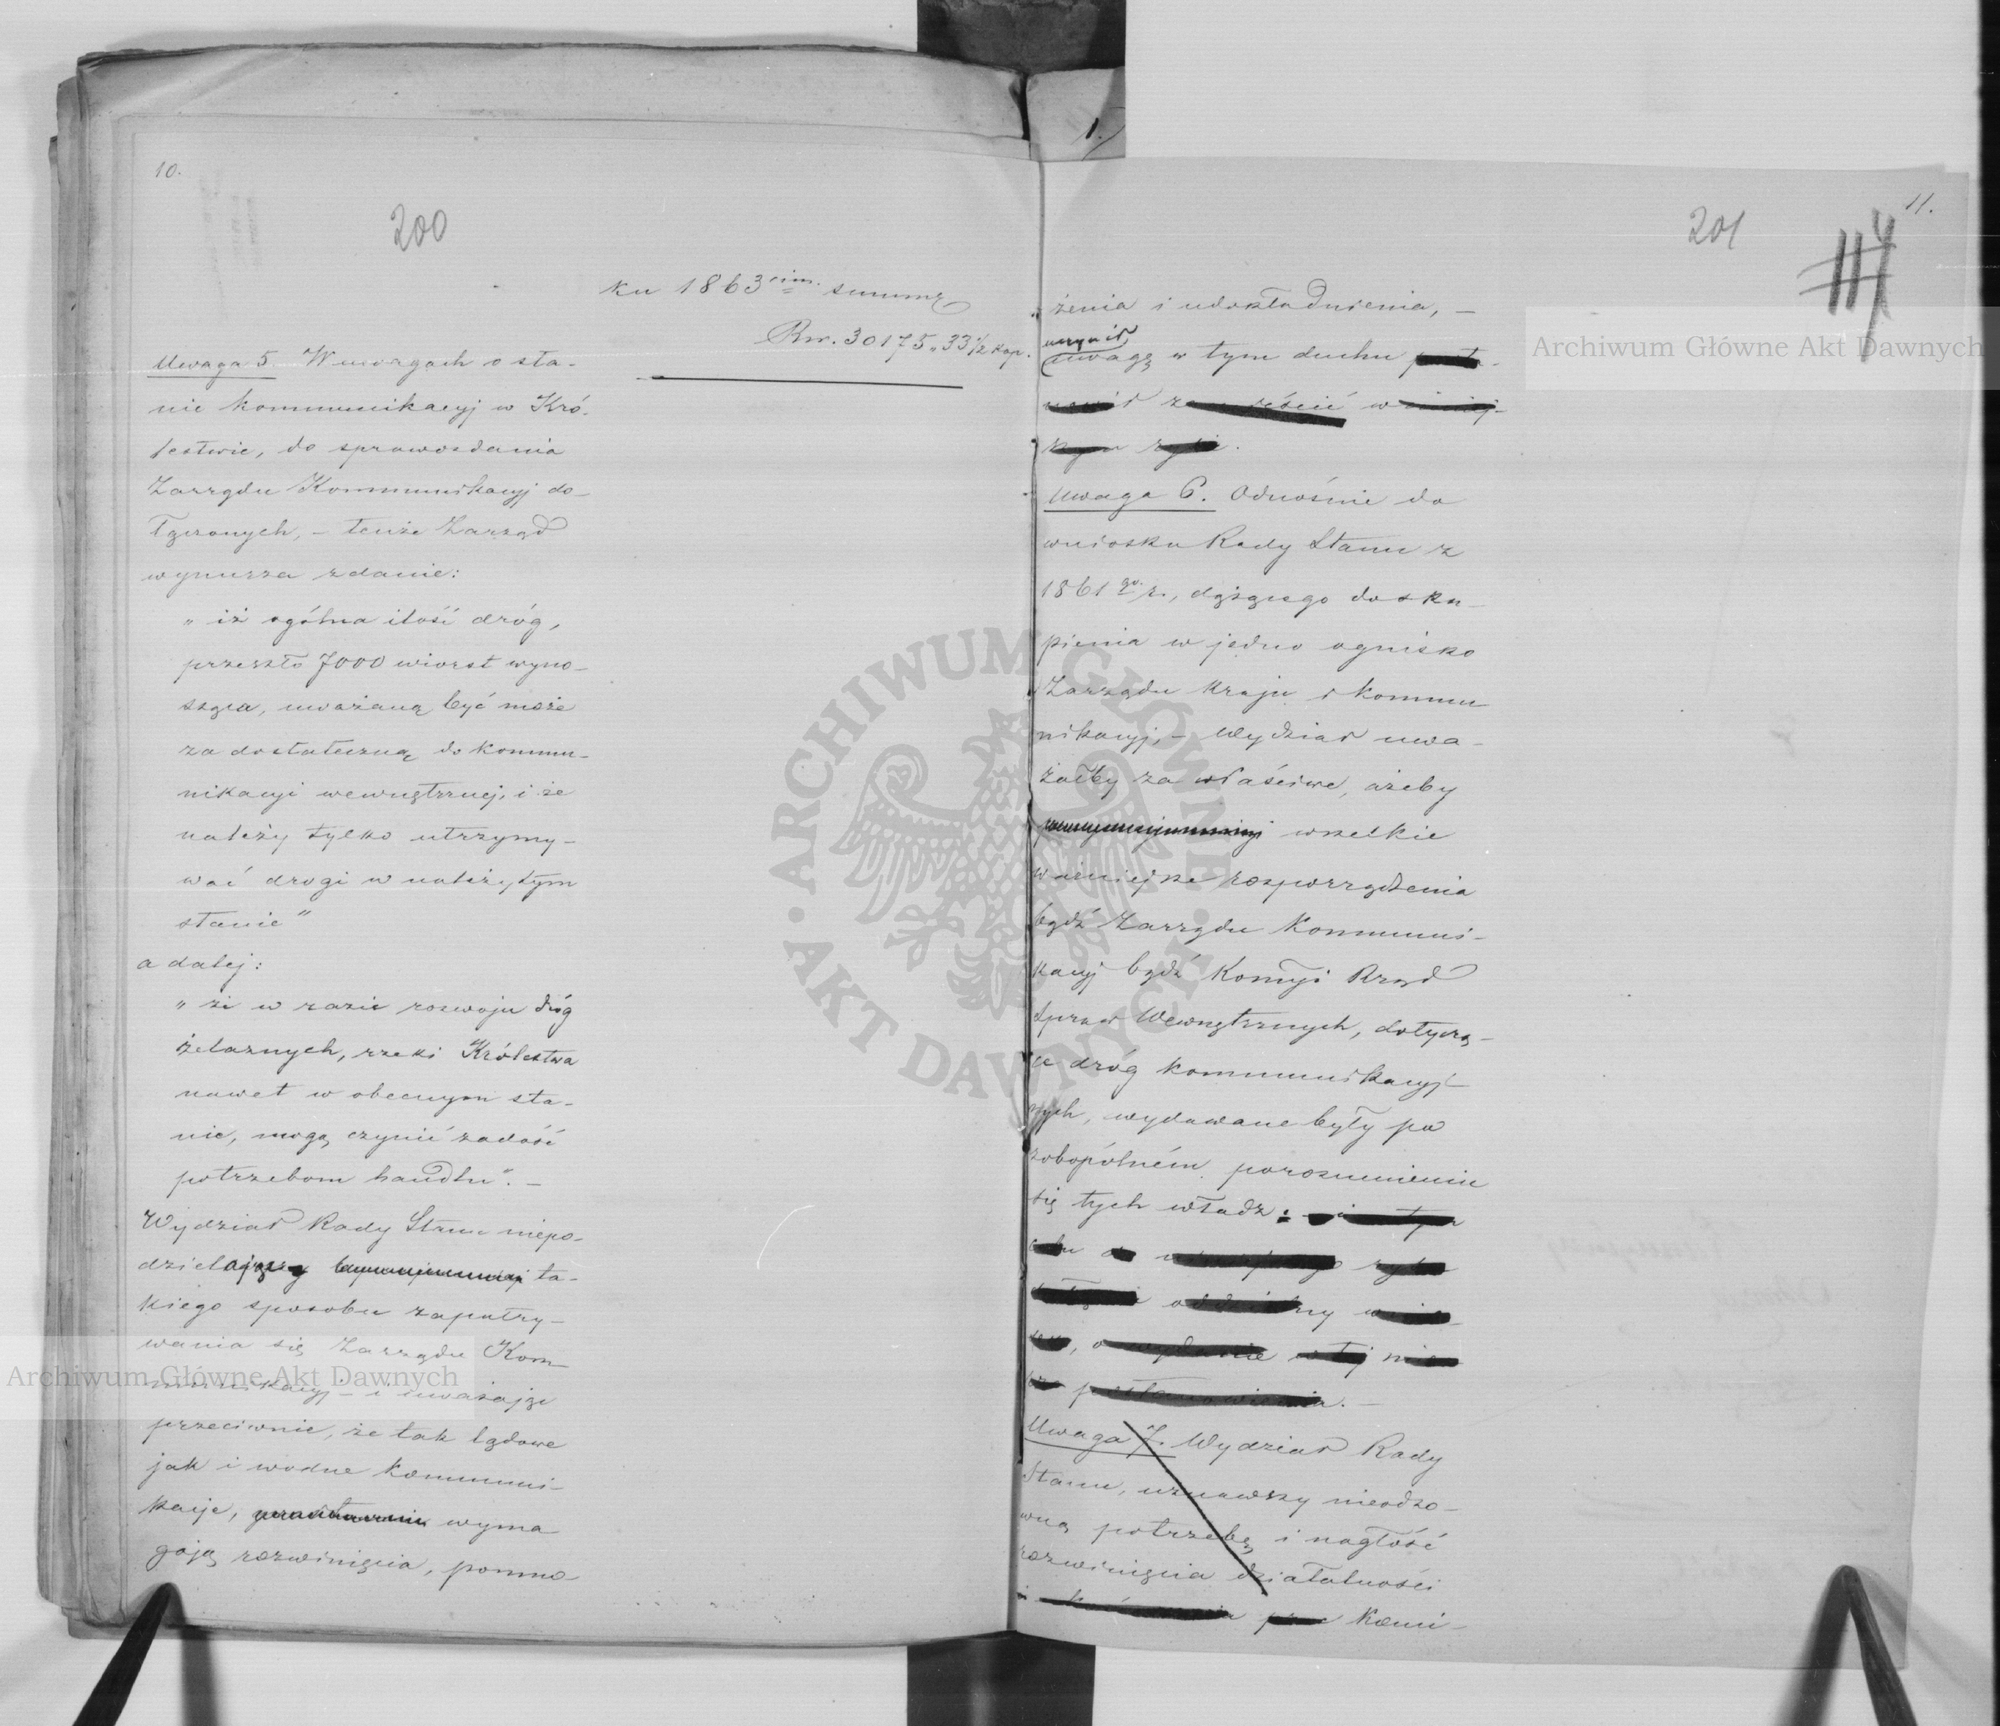 10.
200
ku 1863cim. summę
Rsr. 30175„33½ kop.
Uwaga 5 W uwagach o sta-
nie kommunikacyj w Kró-
lestwie, do sprawozdania
Zarządu Kommunikacyj do-
łączonych, – tenże Zarząd
wynurza zdanie:
„iż ogólna ilość dróg,
przeszło 7000 wiorst wyno-
sząca, uważaną być może
za dostateczną do kommu-
nikacyi wewnętrznej, i że
należy tylko utrzymy-
wać drogi w należytym
stanie"
a dalej:
„że w razie rozwoju dróg
żelaznych, rzeki Królestwa
nawet w obecnym sta-
nie, mogą czynić zadość
potrzebom handlu". –
Wydział Rady Stanu niepo-
dzielający ta-
kiego sposobu zapatry-
wania się Zarządu Kom-
munikacyj – i uważając
przeciwnie, że tak lądowe
jak i wodne kommuni-
kacje, wyma
gają rozwinięcia, pomno
1.
11.
201
żenia i udokładnienia, –
uczynił
uwagę w tym duchu

Uwaga 6. Odnośnie do
wniosku Rady Stanu z
1861go r., dążącego do sku-
pienia w jedno ognisko
Zarządu Kraju i kommu
nikacyj, – Wydział uwa-
żałby za właściwe, ażeby
wszelkie
ważniejsze rozporządzenia
bądź Zarządu Kommuni-
kacyj bądź Kommyi Rząd
Spraw Wewnętrznych, dotyczą-
ce dróg kommunikacyj-
nych, wydawane były po
zobopólném porozumieniu
się tych władz
oddzielny
postanowienia. –
Uwaga 7. Wydział Rady
Stanu, uznawszy nieodzo-
wną potrzebę i nagłość
rozwinięcia działalności
Komi-
Archiwum Główne Akt Dawnych
Archiwum Główne Akt Dawnych
ARCHIWUM GŁÓWNE • AKT DAWNYCH •